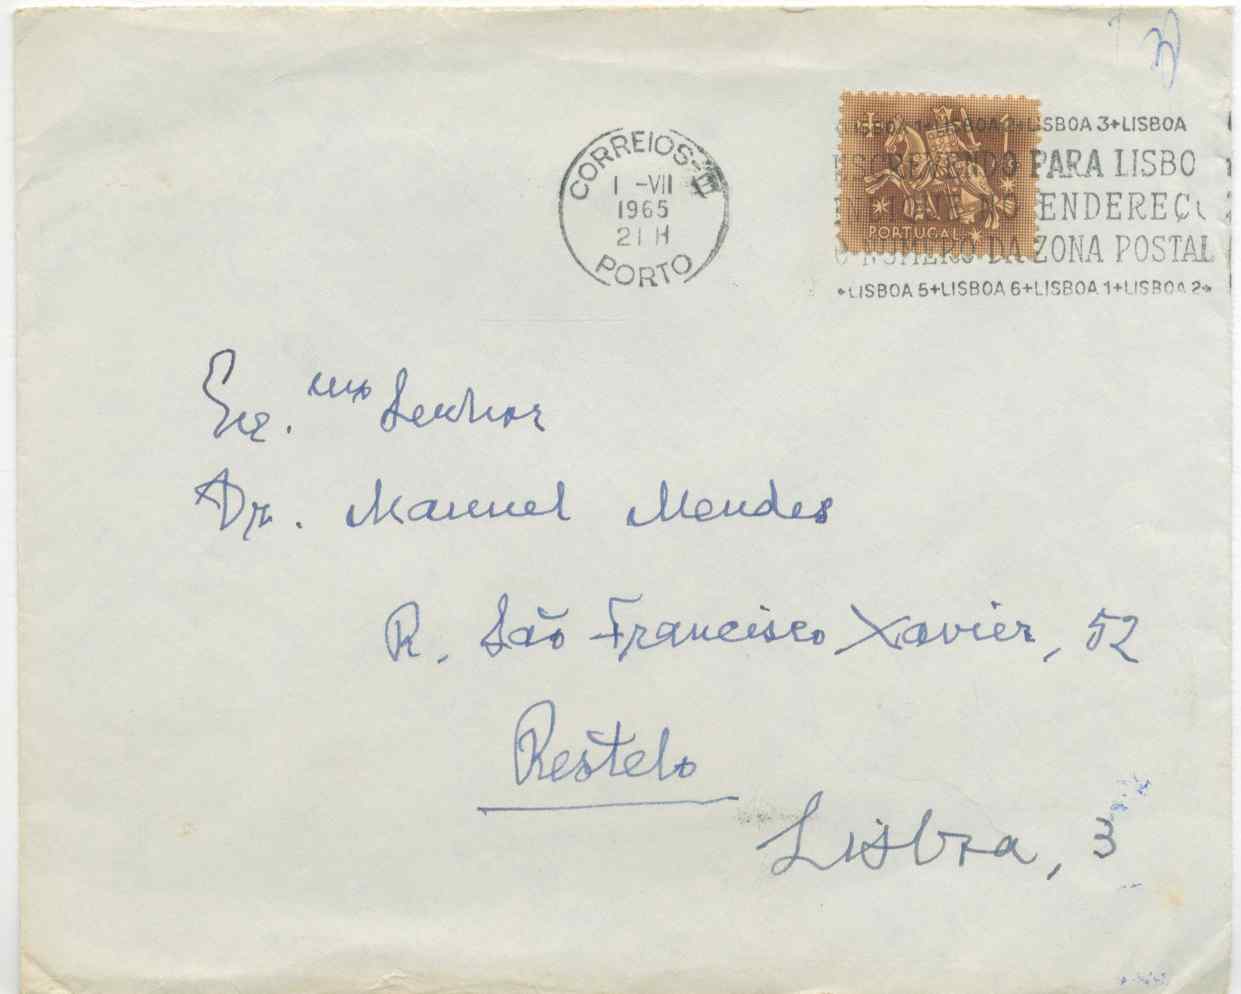 CORREIOS
1 -VII
1965
21 H
PORTO
1
PORTUGAL
LISBOA 3+LISBOA
ESCREVENDO PARA LISBO
NO ENDEREÇ
O NUMERO DA ZONA POSTAL
LISBOA 5+LISBOA 6+LISBOA 1+LISBOA 2+
Exc.mo Senhor
Dr. Manuel Mendes
R. São Francisco Xavier, 52
Restelo
Lisboa, 3